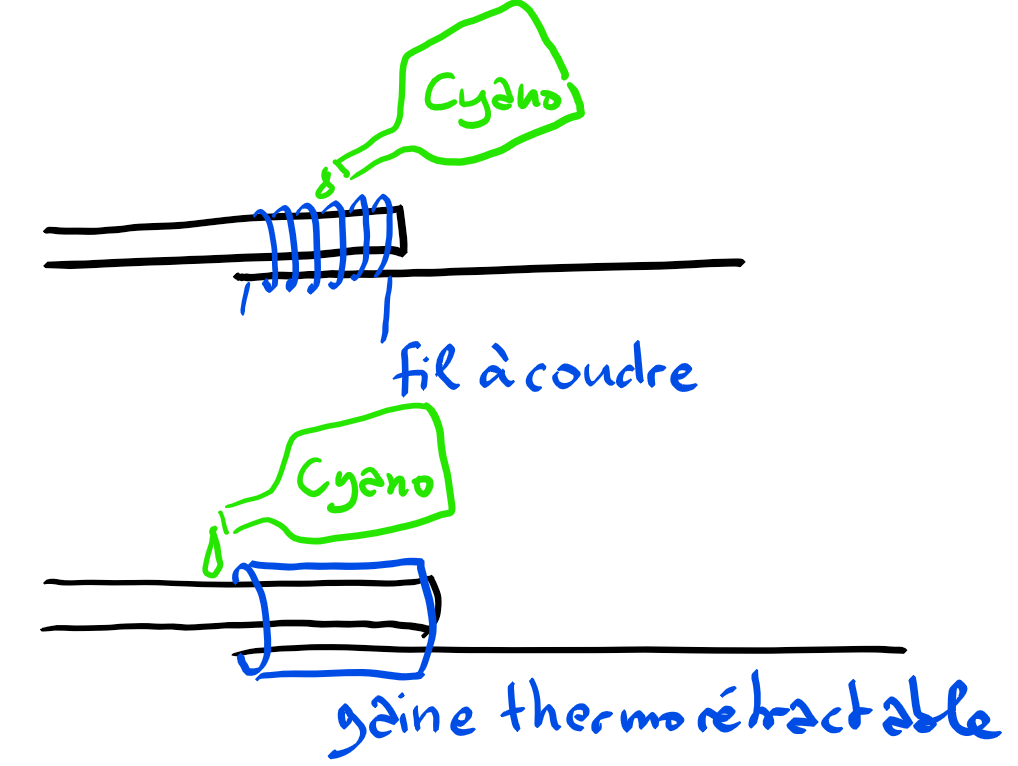 Cyano
fil à coudre
Cyano
gaine thermorétractable